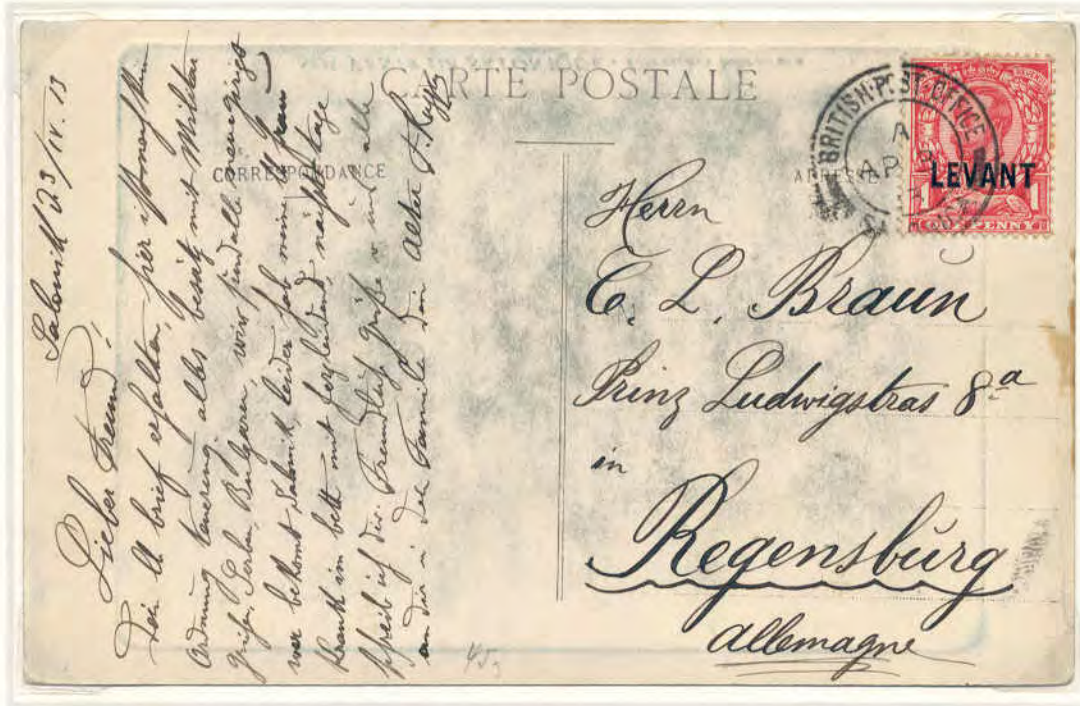 CARTE POSTALE
CORRESPONDANCE
ADRESSE
BRITISH·POST·OFFICE
A
AP
LEVANT
1 ONE PENNY 1
Salonik 23/IV. 13
Lieber Freund!
Dein lb brief erhalten, hier ist
Ordnung teuerung alles besetzt mit Militär
Serben, Bulgaren, wir sind alle neugierig
wer bekomt Salonik, leider hab mein Frau
krank im bett mit nächste tage
schreib ich dir. Freundlich grüße u alle
an dir u. dei Familie Dein alter
Herrn
E. L. Braun
Prinz Ludwigstras 8a
in
Regensburg
Allemagne
45